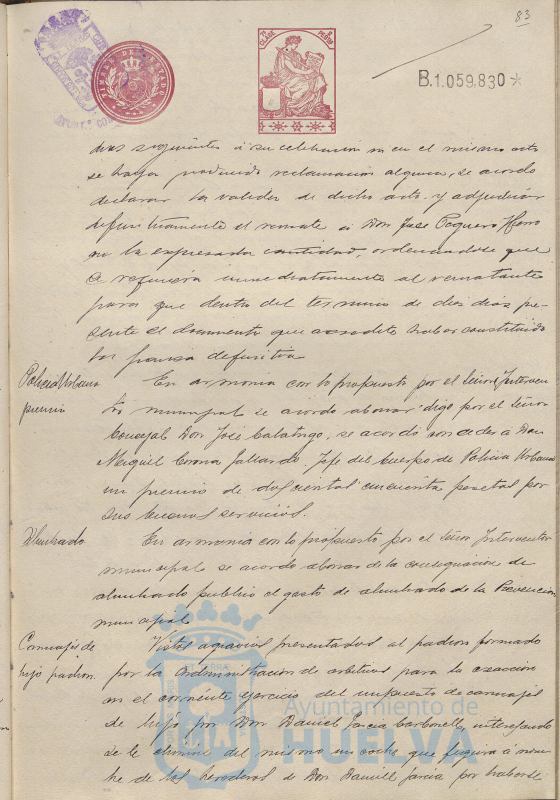 83
TIMBRE DEL ESTADO
CLASE 8ª
B.1.059.830 *
dias siguientes á su celebracion ni en el mismo acto
se haya producido reclamacion alguna, se acordó
declarar la validez de dicho acto y adjudicar
definitivamente el remate á Don José Hierro
en la expresada cantidad, ordenandose que
se requiera inmediatamente al rematante
para que dentro del termino de diez dias pre-
sente el documento que acredite haber constituido
la fianza definitiva.
Policia Urbana En armonia con lo propuesto por el Señor Interven
premio tor municipal se acordó abonar digo por el Señor
Concejal Don José Calatrigo, se acordó conceder a Don
Miguel Corona Gallardo, Jefe del Cuerpo de Policia Urbana
un premio de doscientas cincuenta pesetas por
sus buenos servicios.
Alumbrado En armonia con lo propuesto por el Señor Interventor
municipal se acordó abonar de la consignacion de
alumbrado publico el gasto de alumbrado de la Prevencion
municipal.
Carruajes de Vistos agravios presentados al padron formado
lujo padron. por la Administracion de arbitrios para la exaccion
en el corriente ejercicio del impuesto de carruajes
de lujo por Don Daniel Garcia Carbonell, interesando
se le elimine del mismo un coche que figura á nom-
bre de los herederos de Don Daniel Garcia por haberse
Ayuntamiento de
HUELVA